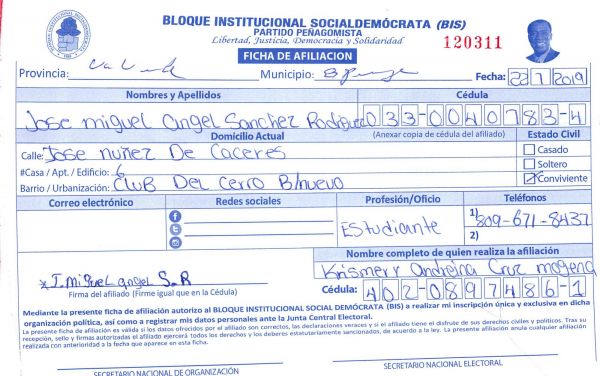 BLOQUE INSTITUCIONAL SOCIALDEMÓCRATA (BIS)
PARTIDO PEÑAGOMISTA
Libertad, Justicia, Democracia y Solidaridad
FICHA DE AFILIACION
120311
Provincia: Municipio: Fecha: 22/7/2019
Nombres y Apellidos Cédula
Jose miguel angel Sanchez Rodriguez 033-0040783-4
Domicilio Actual (Anexar copia de cédula del afiliado) Estado Civil
Calle: Jose nuñez De Caceres Casado
#Casa / Apt. / Edificio: 6 Soltero
Barrio / Urbanización: CLUB Del Cerro B/nuevo Conviviente
Correo electrónico Redes sociales Profesión/Oficio Teléfonos
EStudiante 1) 809-671-8437
2)
Nombre completo de quien realiza la afiliación
Krismery Andreina Cruz mogena
x J. miguel angel S.R
Firma del afiliado (Firme igual que en la Cédula) Cédula: 402-0897486-1
Mediante la presente ficha de afiliación autorizo al BLOQUE INSTITUCIONAL SOCIAL DEMÓCRATA (BIS) a realizar mi inscripción única y exclusiva en dicha
organización política, así como a registrar mis datos personales ante la Junta Central Electoral.
La presente ficha de afiliación es válida si los datos ofrecidos por el afiliado son correctos, las declaraciones veraces y si el afiliado tiene el disfrute de sus derechos civiles y políticos. Tras su
recepción, sello y firmas autorizadas el afiliado ejercerá todos los derechos y los deberes estatutariamente sancionados, de acuerdo a la ley. La presente afiliación anula cualquier afiliación
realizada con anterioridad a la fecha que aparece en esta ficha.
SECRETARIO NACIONAL DE ORGANIZACIÓN SECRETARIO NACIONAL ELECTORAL